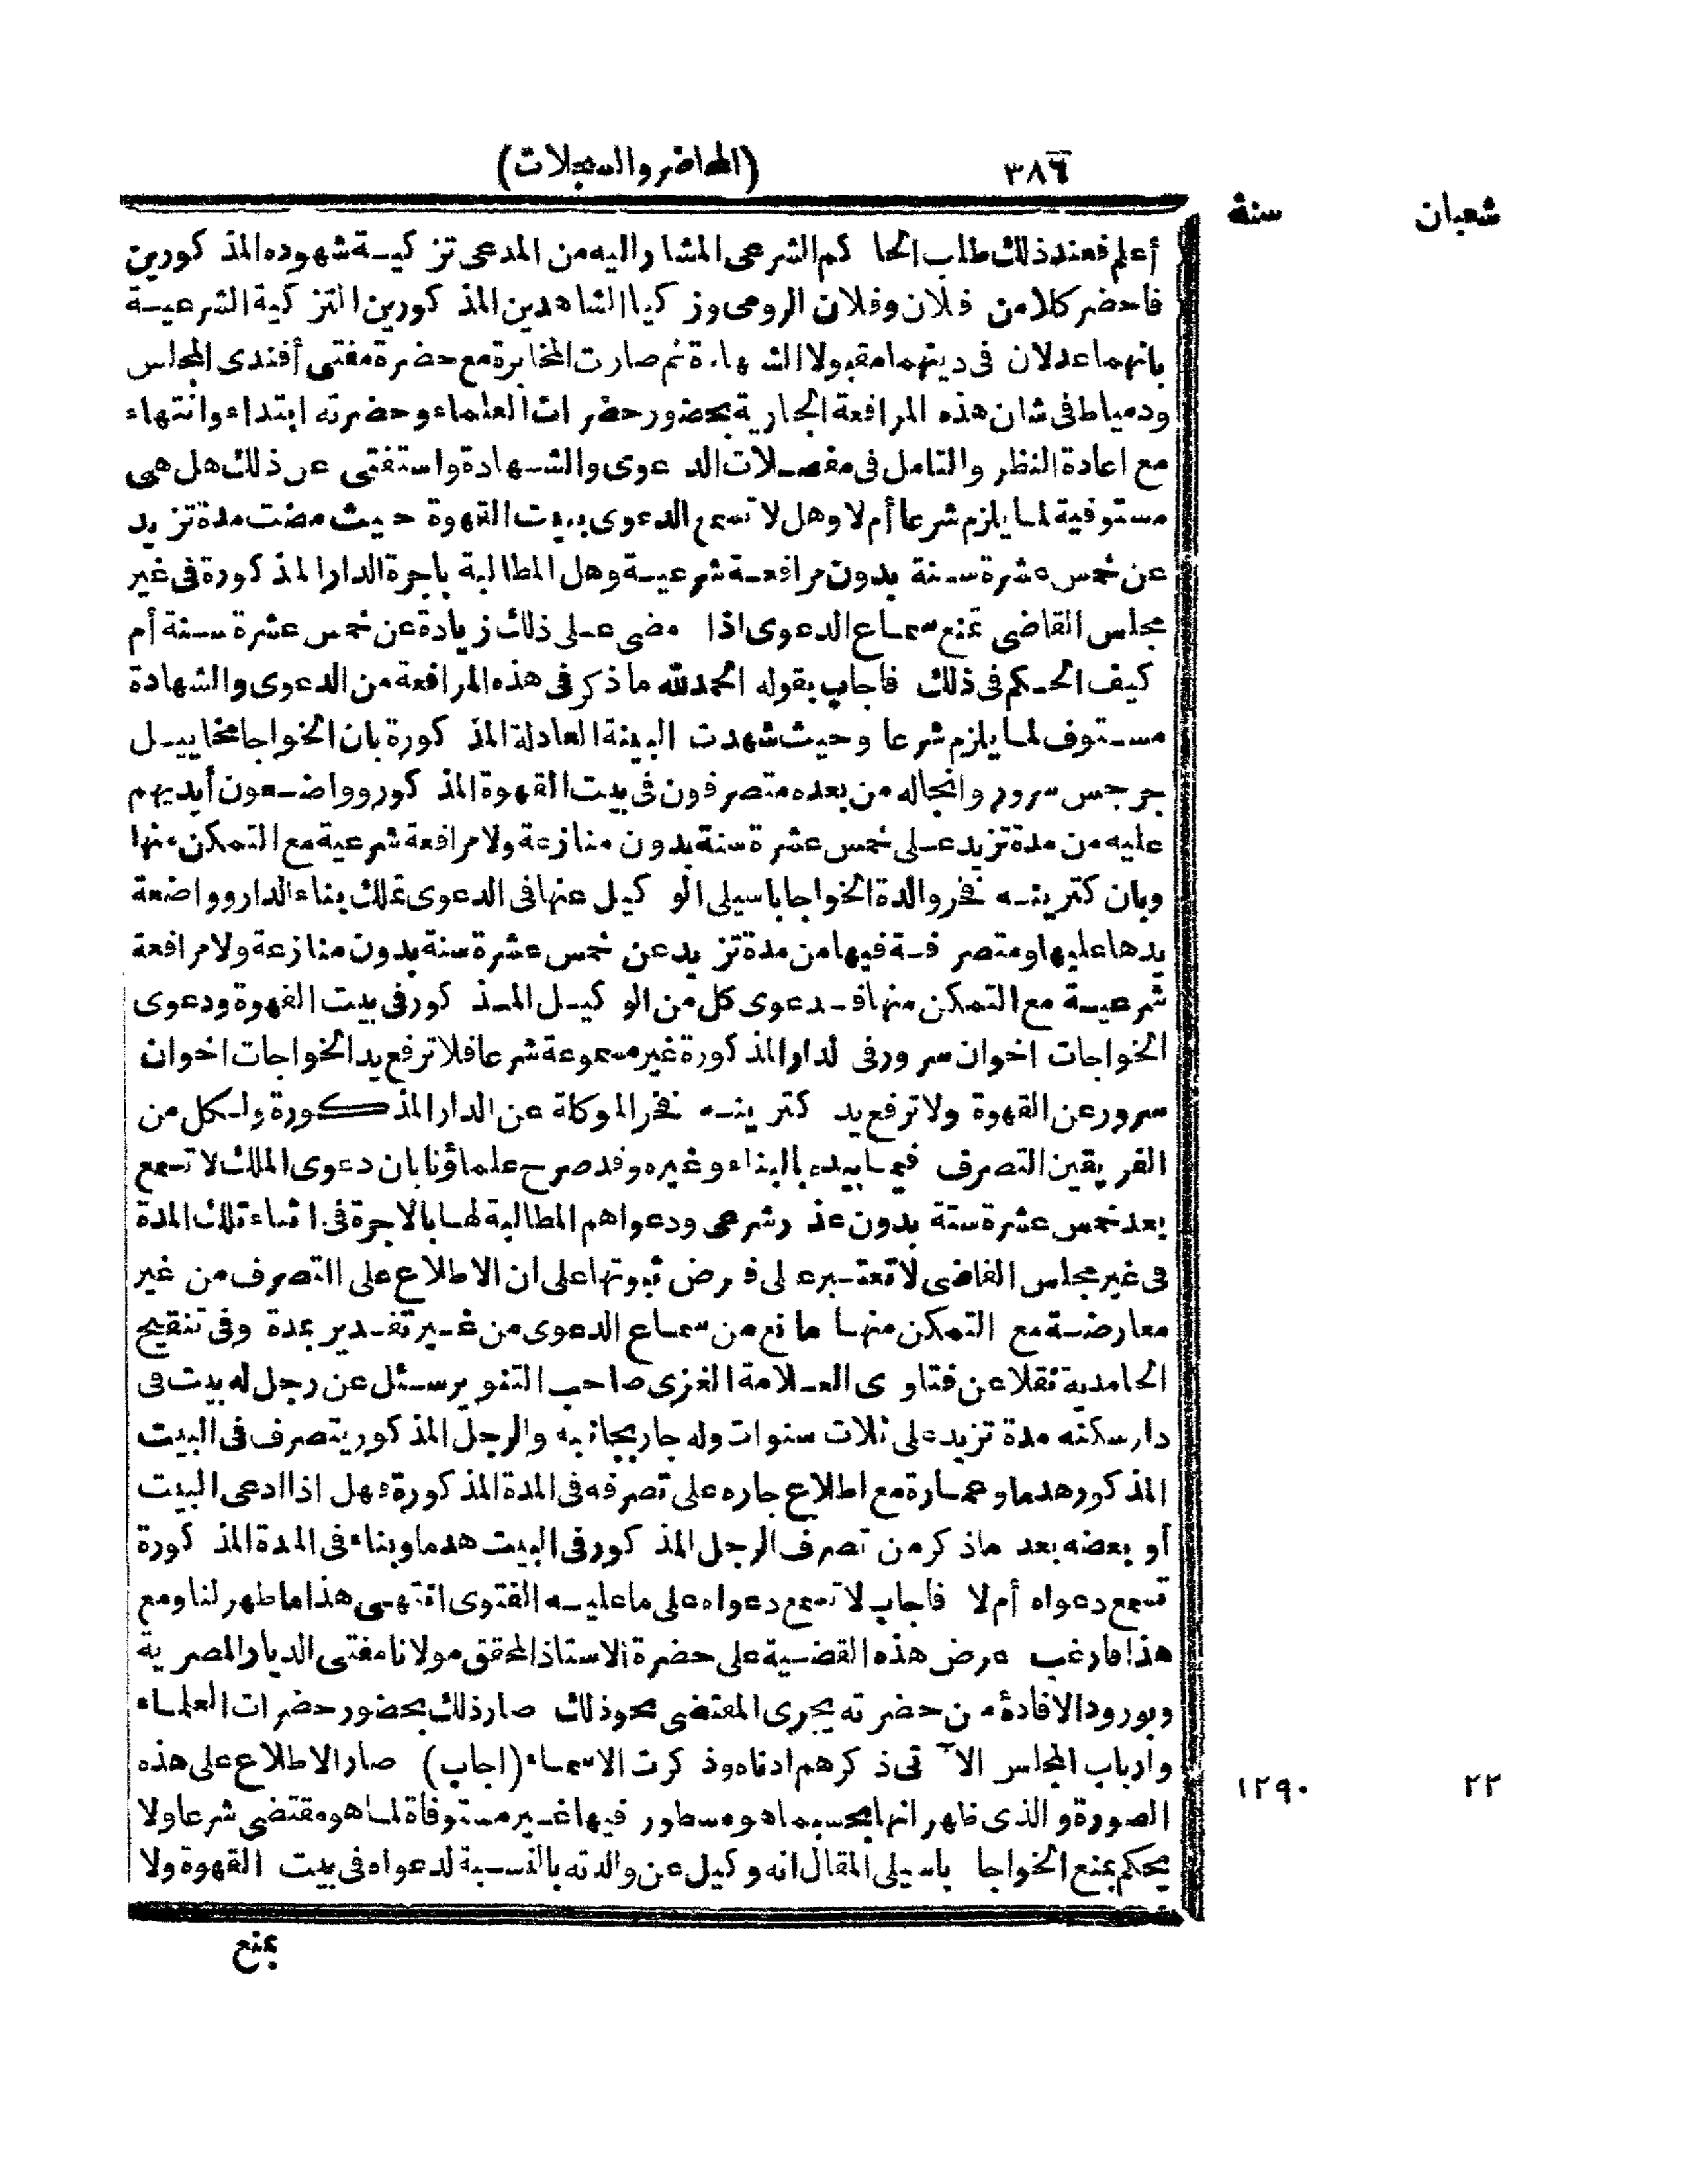 ٣٨٦ (المحاضر والسجلات)
شعبان سنة
أعلم فعند ذلك طلب الحاكم الشرعى المشار اليه من المدعى تزكيــة شهوده المذكورين
فأحضر كلا من فلان وفلان الرومى وزكيا الشاهدين المذكورين التزكية الشرعيــة
بانهما عدلان فى دينهما مقبولا الشهادة ثم صارت المخابرة مع حضرة مفتى أفندى المجلس
ودمياط فى شان هذه المرافعة الجارية بحضور حضرات العلماء وحضرته ابتداء وانتهاء
مع اعادة النظر والتامل فى مفصــلات الدعوى والشــهادة واستفتى عن ذلك هل هى
مستوفية لما يلزم شرعا أم لا وهل لا تسمع الدعوى ببيت القهوة حيث مضت مدة تزيد
عن خمس عشرة ســنة بدون مرافعــة شرعيــة وهل المطالبة باجرة الدار المذكورة فى غير
مجلس القاضى تمنع سماع الدعوى اذا مضى عــلى ذلك زيادة عن خمس عشرة ســنة أم
كيف الحــكم فى ذلك فاجاب بقوله الحمدلله ما ذكر فى هذه المرافعة من الدعوى والشهادة
مســتوف لما يلزم شرعا وحيث شهدت البينة العادلة المذكورة بان الخواجا مخاييــل
جرجس سرور وانجاله من بعده متصرفون فى بيت القهوة المذكور وواضــعون أيديهم
عليه من مدة تزيد عــلى خمس عشرة سنة بدون منازعة ولا مرافعة شرعية مع التمكن منها
وبان كترينــه نخر والدة الخواجا باسيلى الوكيل عنها فى الدعوى تملك بناء الدار وواضعة
يدها عليها ومتصرفــة فيها من مدة تزيد عن خمس عشرة سنة بدون منازعة ولا مرافعة
شرعيــة مع التمكن منها فــدعوى كل من الوكيــل المــذكور فى بيت القهوة ودعوى
الخواجات اخوان سرور فى لدار المذكورة غير مسموعة شرعا فلا ترفع يد الخواجات اخوان
سرور عن القهوة ولا ترفع يد كترينــه نخر الموكلة عن الدار المذكورة ولــكل من
الفريقين التصرف فيما بيده بالبناء وغيره وقد صرح علماؤنا بان دعوى الملك لا تــسمع
بعد خمس عشرة سنة بدون عذر شرعى ودعواهم المطالبة لها بالاجرة فى اثناء تلك المدة
فى غير مجلس القاضى لا تعتــبر على فرض ثبوتها على ان الاطلاع على التصرف من غير
معارضــة مع التمكن منها مانع من سماع الدعوى من غــير تقــدير بمدة وفى تنقيح
الحامدية نقلا عن فتاوى العــلامة الغزى صاحب التنوير ســئل عن رجل له بيت فى
دار سكنه مدة تزيد على ثلاث سنوات وله جار بجانبه والرجل المذكور يتصرف فى البيت
المذكور هدما وعمارة مع اطلاع جاره على تصرفه فى المدة المذكورة فهل اذا ادعى البيت
أو بعضه بعد ماذكر من تصرف الرجل المذكور فى البيت هدما وبناء فى المدة المذكورة
تسمع دعواه أم لا فأجاب لا تسمع دعواه على ما عليــه الفتوى انتهــى هذا ما ظهر لنا ومع
هذا فارغب عرض هذه القضــية على حضرة الاستاذ المحقق مولانا مفتى الديار المصرية
وبورود الافادة من حضرته يجرى المقتضى نحو ذلك صار ذلك بحضور حضرات العلماء
وأرباب المجلس الآتى ذكرهم ادناه وذكرت الاسماء (اجاب) صار الاطلاع على هذه
٢٢ ١٢٩٠
الصورة والذى ظهر انها بحسبما هو مسطور فيها غــير مستوفاة لما هو مقتضى شرعا ولا
يحكم بمنع الخواجا باسيلى المقال انه وكيل عن والدته بالنسبة لدعواه فى بيت القهوة ولا
بمنع